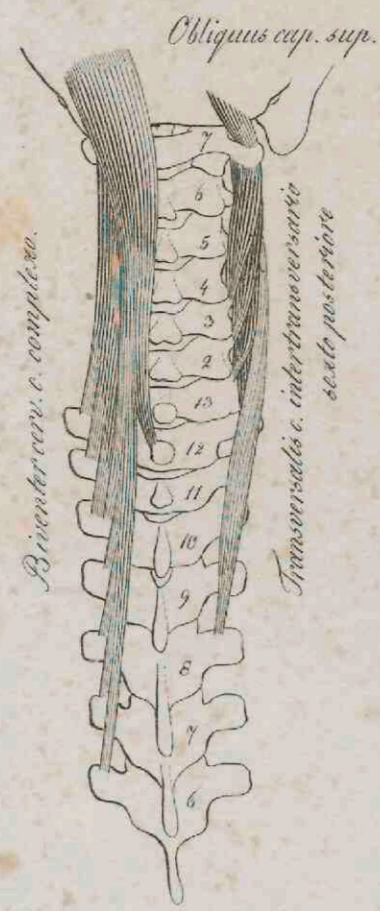 Obliquus cap. sup.
Biventer cerv. c. complexo.
Transversalis c. intertransversario
sexto posteriore
7
6
5
4
3
2
13
12
11
10
9
8
7
6